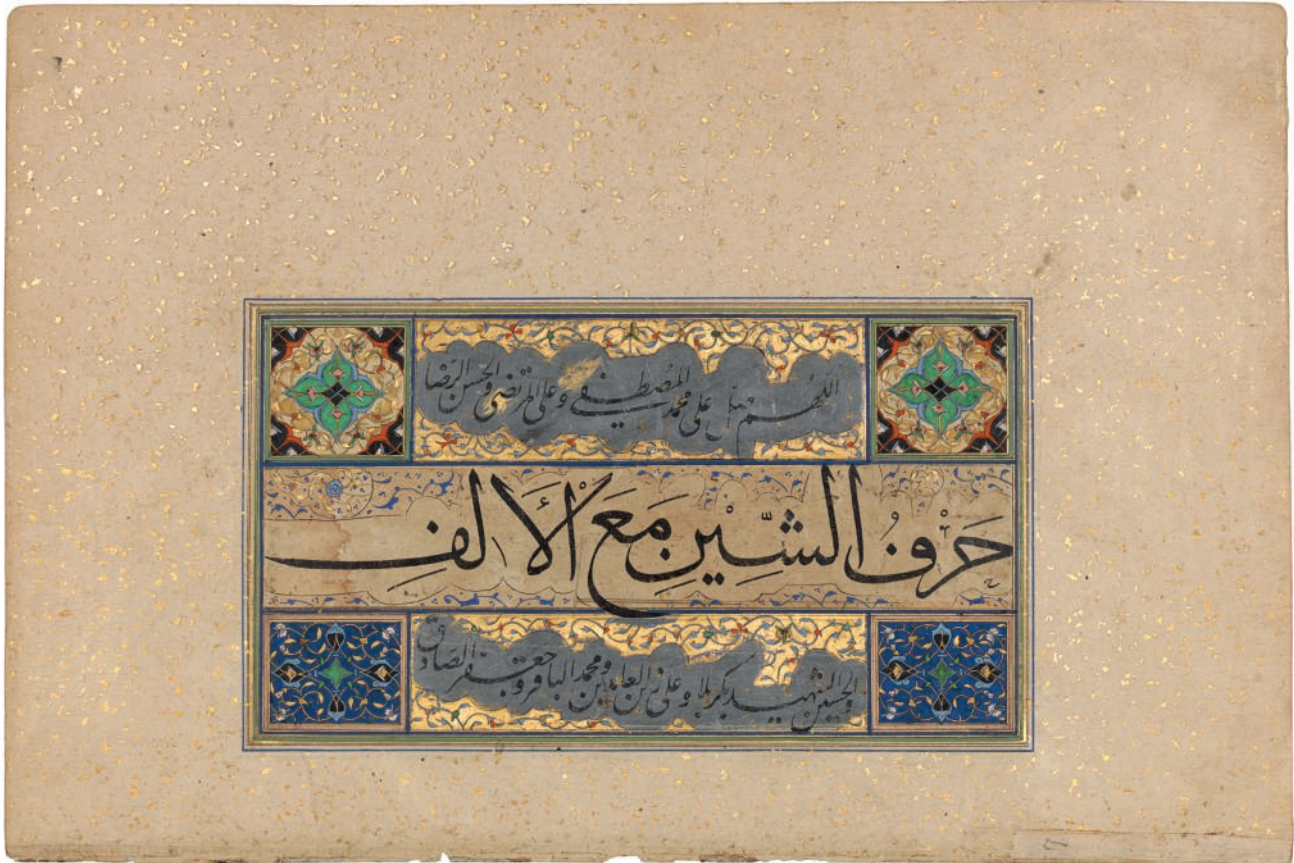 اللهم صل على محمد المصطفى وعلي المرتضى والحسن الرضا
حَرْفُ الشِّيْنِ مَعَ الْأَلِفِ
والحسين الشهيد بكربلا وعلي زين العابدين ومحمد الباقر وجعفر الصادق